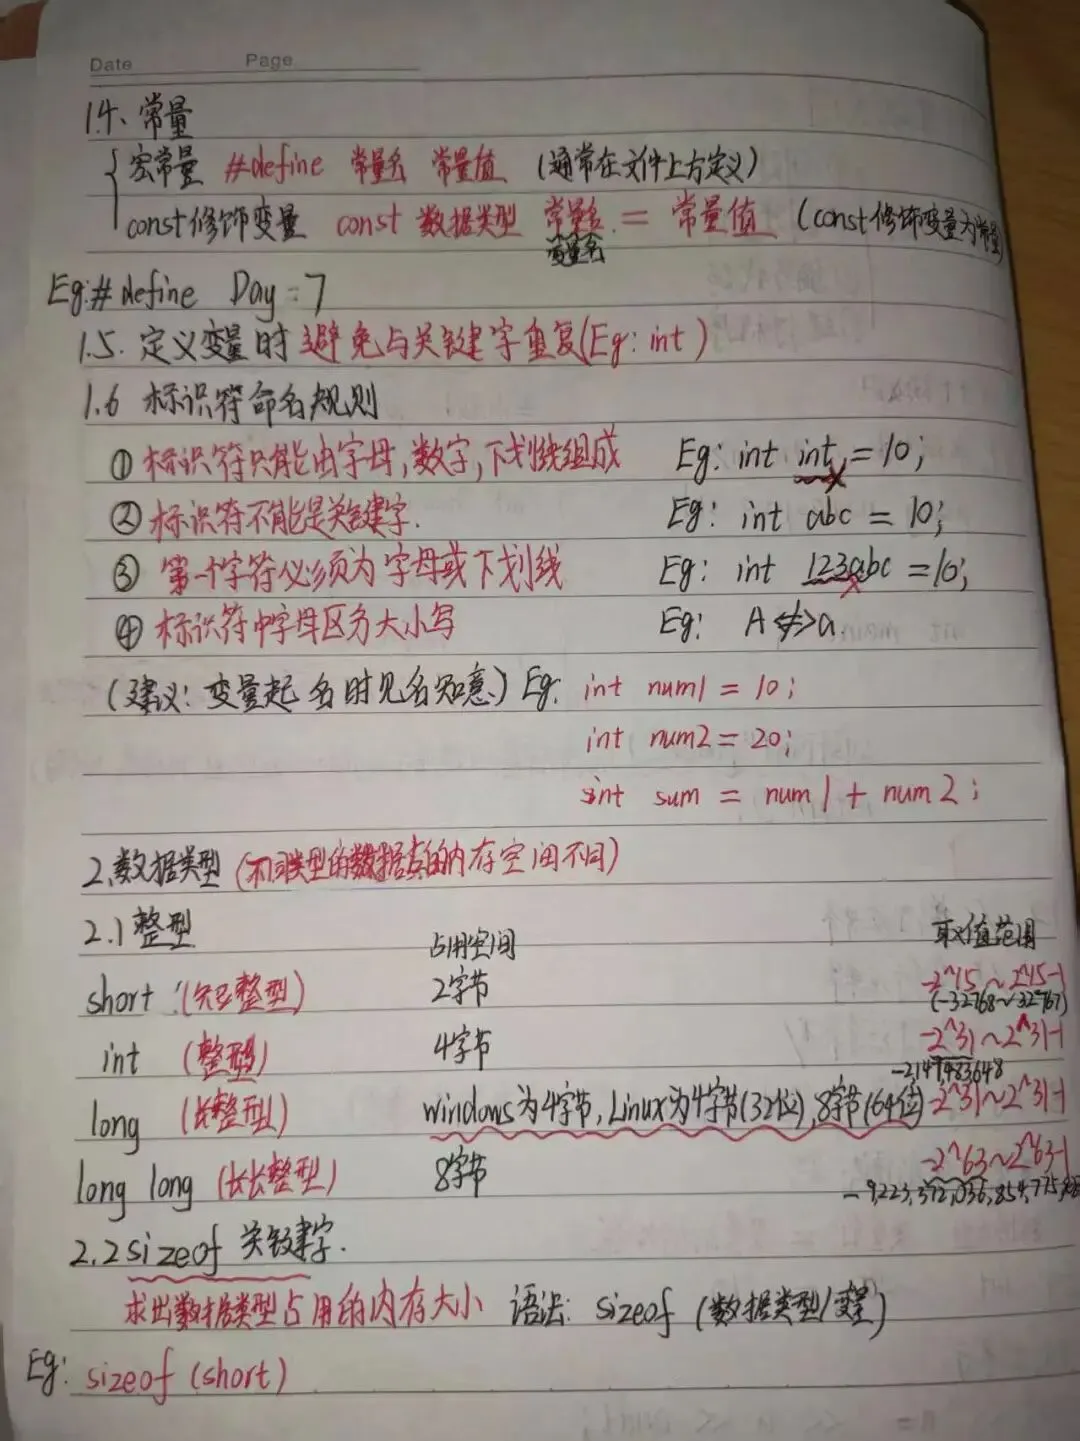 Date Page
1.4、常量
宏常量 #define 常量名 常量值 (通常在文件上方定义)
const修饰变量 const 数据类型 常量名 = 常量值 (const修饰变量为常量)
常量名
Eg:#define Day=7
1.5. 定义变量时避免与关键字重复(Eg: int)
1.6 标识符命名规则
① 标识符只能由字母,数字,下划线组成 Eg: int int = 10;
② 标识符不能是关键字. Eg: int abc = 10;
③ 第一个字符必须为字母或下划线 Eg: int 123abc = 10;
④ 标识符中字母区分大小写 Eg: A <≠> a
(建议: 变量起名时见名知意.) Eg: int num1 = 10;
int num2 = 20;
int sum = num1 + num2;
2.数据类型 (不同类型的数据占的内存空间不同)
2.1 整型 占用空间 取值范围
short (短整型) 2字节 -2^15~2^15-1
(-32768~32767)
int (整型) 4字节 -2^31~2^31-1
-2,147,483,648
long (长整型) windows为4字节,Linux为4字节(32位),8字节(64位) -2^31~2^31-1
long long (长长整型) 8字节 -2^63~2^63-1
-9,223,372,036,854,775,808
2.2 sizeof 关键字.
求出数据类型占用的内存大小 语法: sizeof (数据类型/变量)
Eg: sizeof (short)